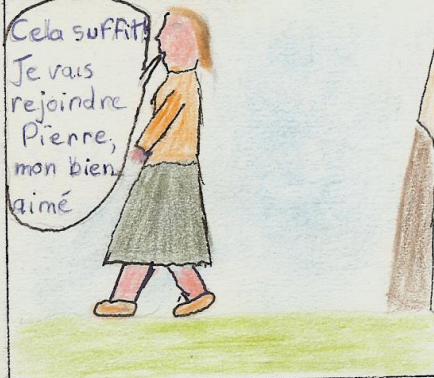 Cela suffit!
Je vais
rejoindre
Pierre,
mon bien
aimé